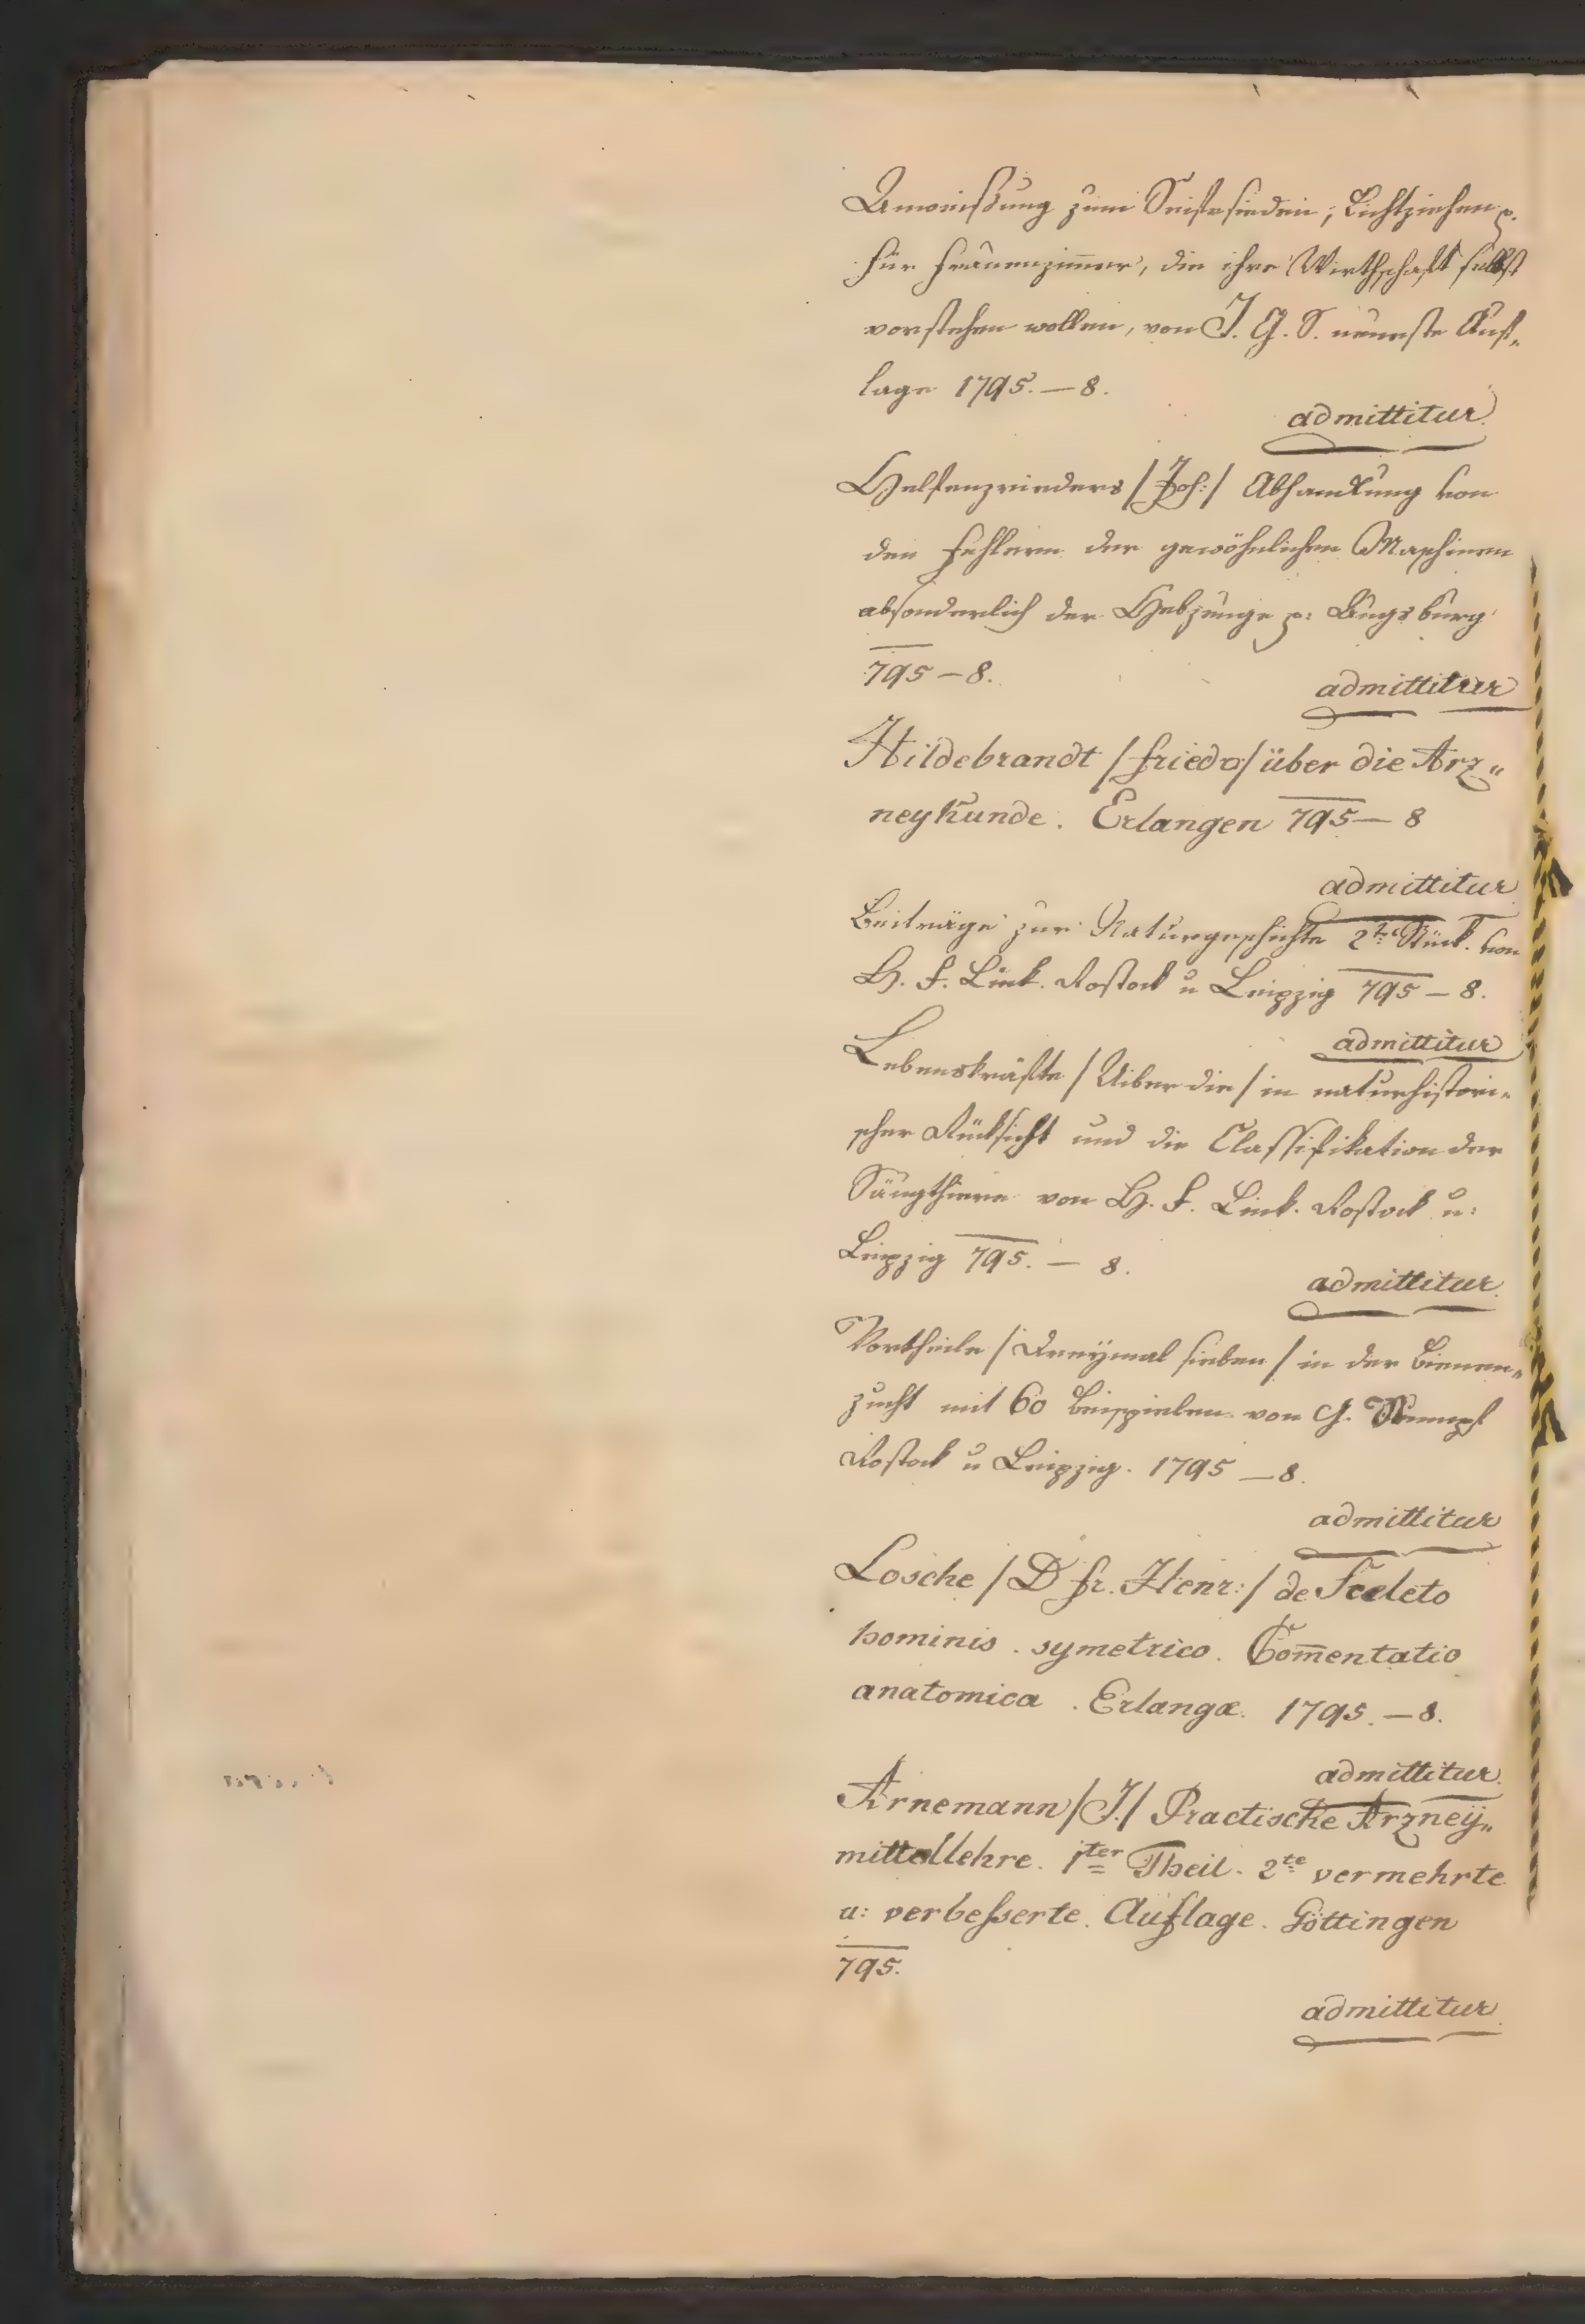 Anweisung zum Seifesieden, Lichtziehen p.
für Frauenzimmer, die ihre Wirthschaft selbst
vorstehen wollen, von J. G. S. neueste Auf„
lage 1795. — 8.
admittitur.
Helfenzrieders /Joh:/ Abhandlung von
den Fehlern der gewöhnlichen Maschinen
absonderlich der Hebzeuge p: Augsburg
795 — 8.
admittitur
Hildebrandt /Friedr/ über die Arz„
neykunde. Erlangen 795 — 8
admittitur
Beiträge zur Naturgeschichte 2tes Stück. von
H. F. Link. Rostock u Leipzig 795 — 8.
admittitur
Lebenskräfte /Uiber die/ in naturhistori„
scher Rücksicht und die Classifikation der
Säugthiere von H. F. Link. Rostock u:
Leipzig 795. — 8.
admittitur.
Vortheile /Dreymal sieben/ in der Bienen„
zucht mit 60 Beispielen von G.
Rostock u Leipzig. 1795 — 8.
admittitur
Losche /D fr. Henr:/ de Sceleto
hominis symetrico. Com̅entatio
anatomica. Erlangæ. 1795. — 8.
admittitur.
Arnemann /J./ Practische Arzney„
mittellehre. 1ter Theil. 2te vermehrte
u: verbesserte Auflage. Göttingen
795.
admittitur.